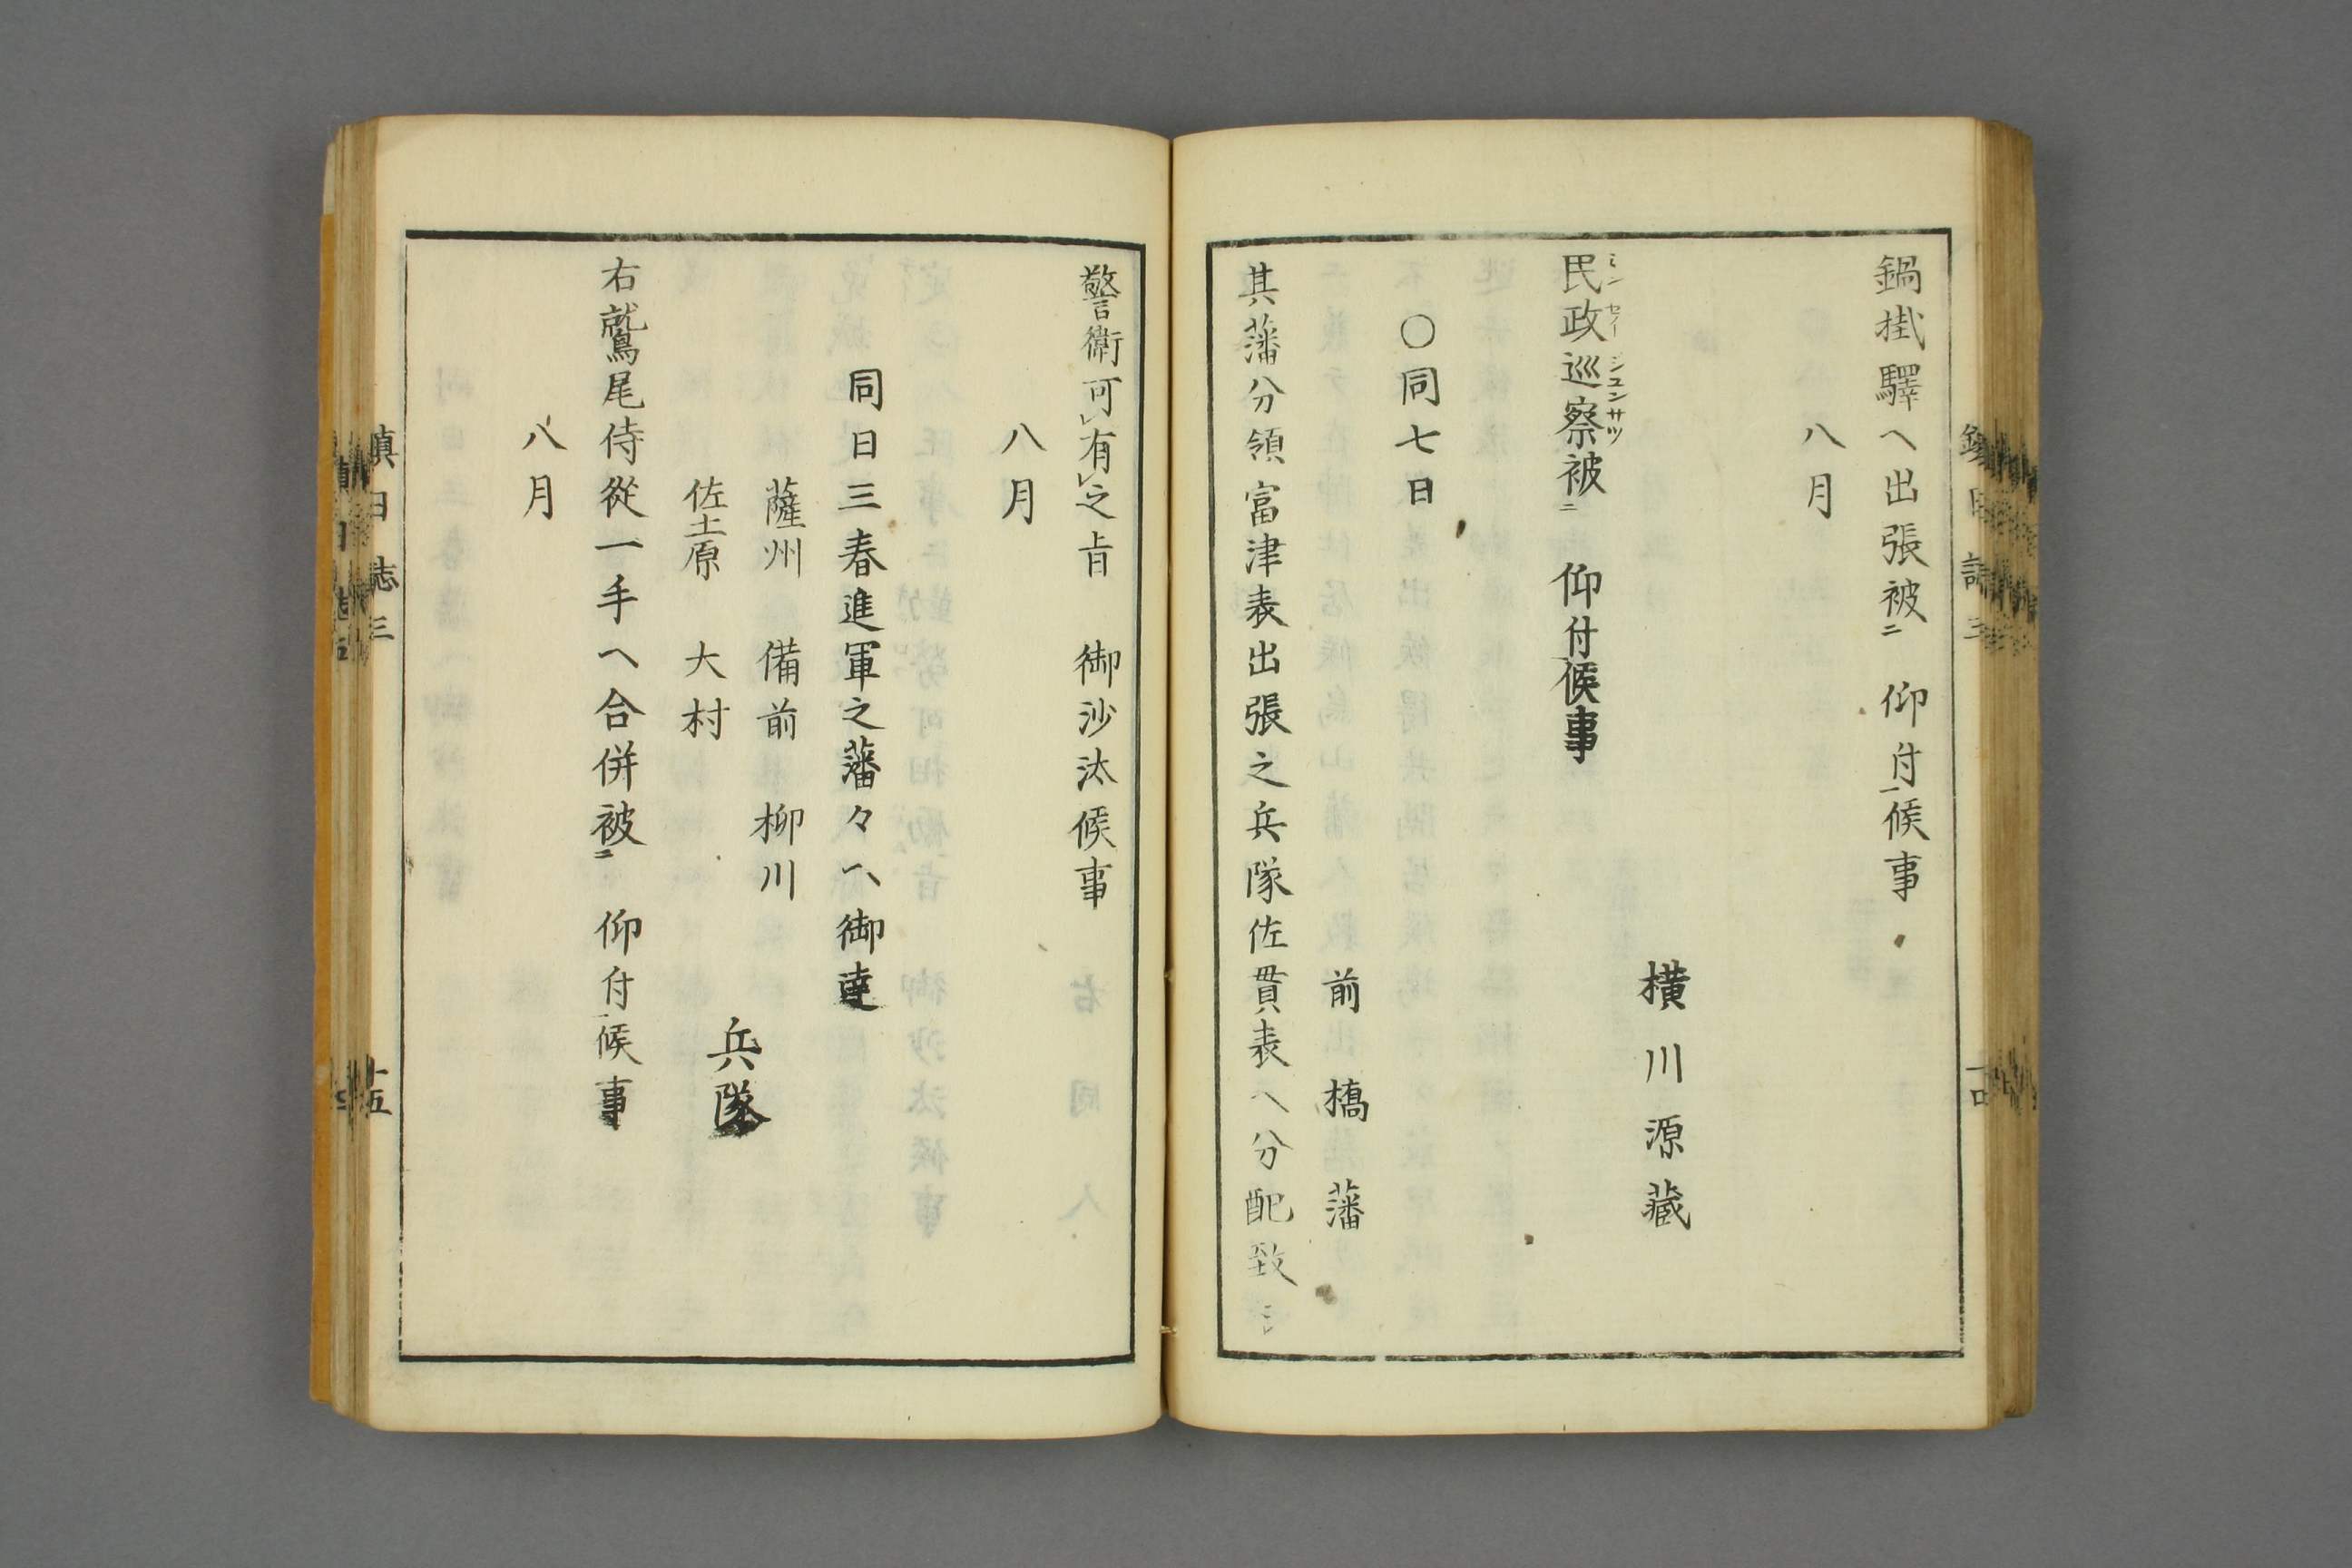 鍋掛驛ヘ出張被ニ 仰付一候事
八月
橫川源藏
民政巡察被ニ 仰付候事
ミンセイジユンサツ
〇同七日
前橋藩
其藩分領富津表出張之兵隊佐貫表ヘ分配致シ
鎭日誌三
十四
警衛可レ有レ之旨 御沙汰候事
八月
同日三春進軍之藩々ヘ御達
薩州 備前 柳川
佐土原 大村
兵隊
右鷲尾侍從一手ヘ合併被ニ 仰付一候事
八月
鎭日誌三
十五